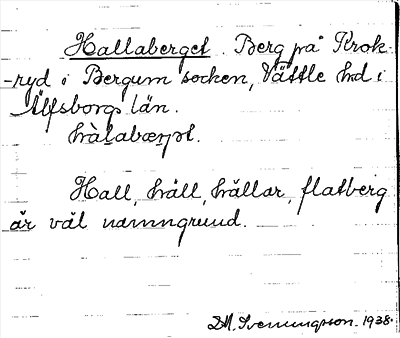 Hallaberget. Berg på Krok-
-ryd i Bergum socken, Vättle hd i
Älfsborgs län.
Hall, häll, hällar, flatberg
är väl namngrund.
D.M. Svenningsson. 1938.